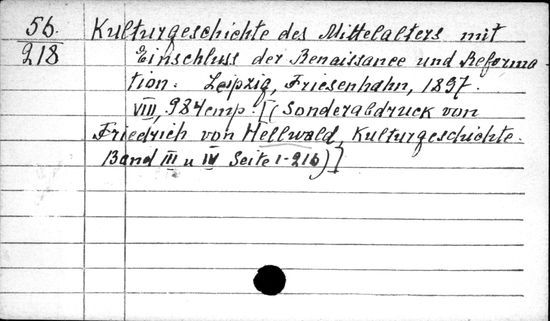 56. Kulturgeschichte des Mittelalters mit
218 Einschluss der Renaissance und Reforma
tion. Leipzig, Friesenhahn, 1897.
VIII, 984 cmp. [(Sonderabdruck von
Friedrich von Hellwald, Kulturgeschichte.
Band III u IV Seite 1-216)]